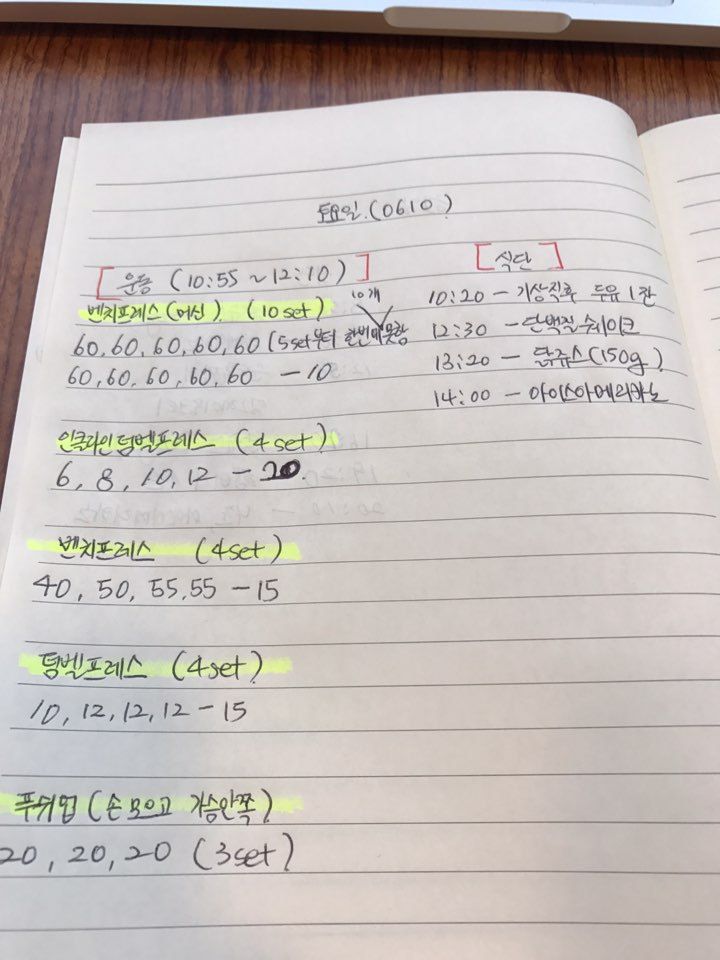 토요일.(0610)
[운동 (10:55 ~ 12:10)]
벤치프레스(머신) (10set)
10개
60, 60, 60, 60, 60 (5set부터 한번에 못함
60, 60, 60, 60, 60 - 10
인클라인 덤벨프레스 (4set)
6, 8, 10, 12 - 20.
벤치프레스 (4set)
40, 50, 55, 55 - 15
덤벨프레스 (4set)
10, 12, 12, 12 - 15
푸쉬업 (손 모으고 가슴안쪽)
20, 20, 20 (3set)
[식단]
10:20 - 기상직후 두유 1잔
12:30 - 단백질 쉐이크
13:20 - 닭쥬스(150g)
14:00 - 아이스아메리카노